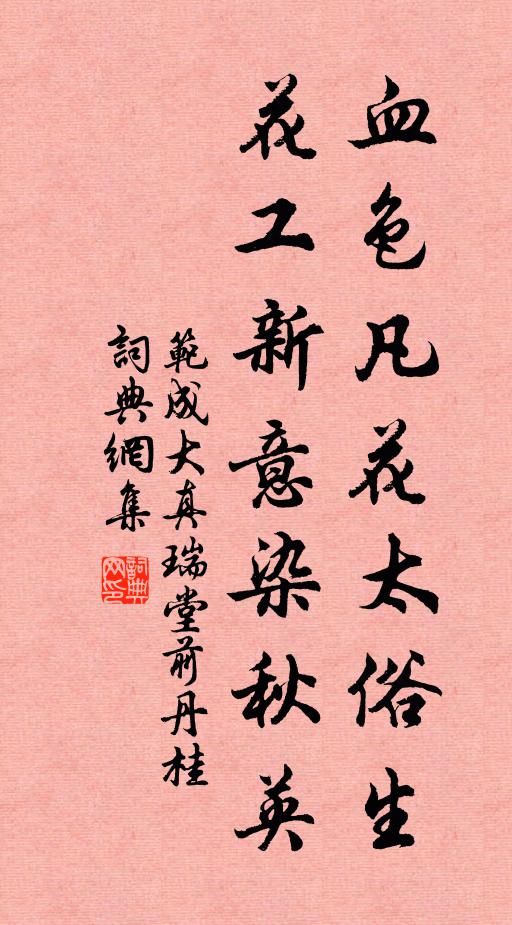 血色凡花太俗生
花工新意染秋英
範成大真瑞堂前丹桂
詞典網集
詞典網印